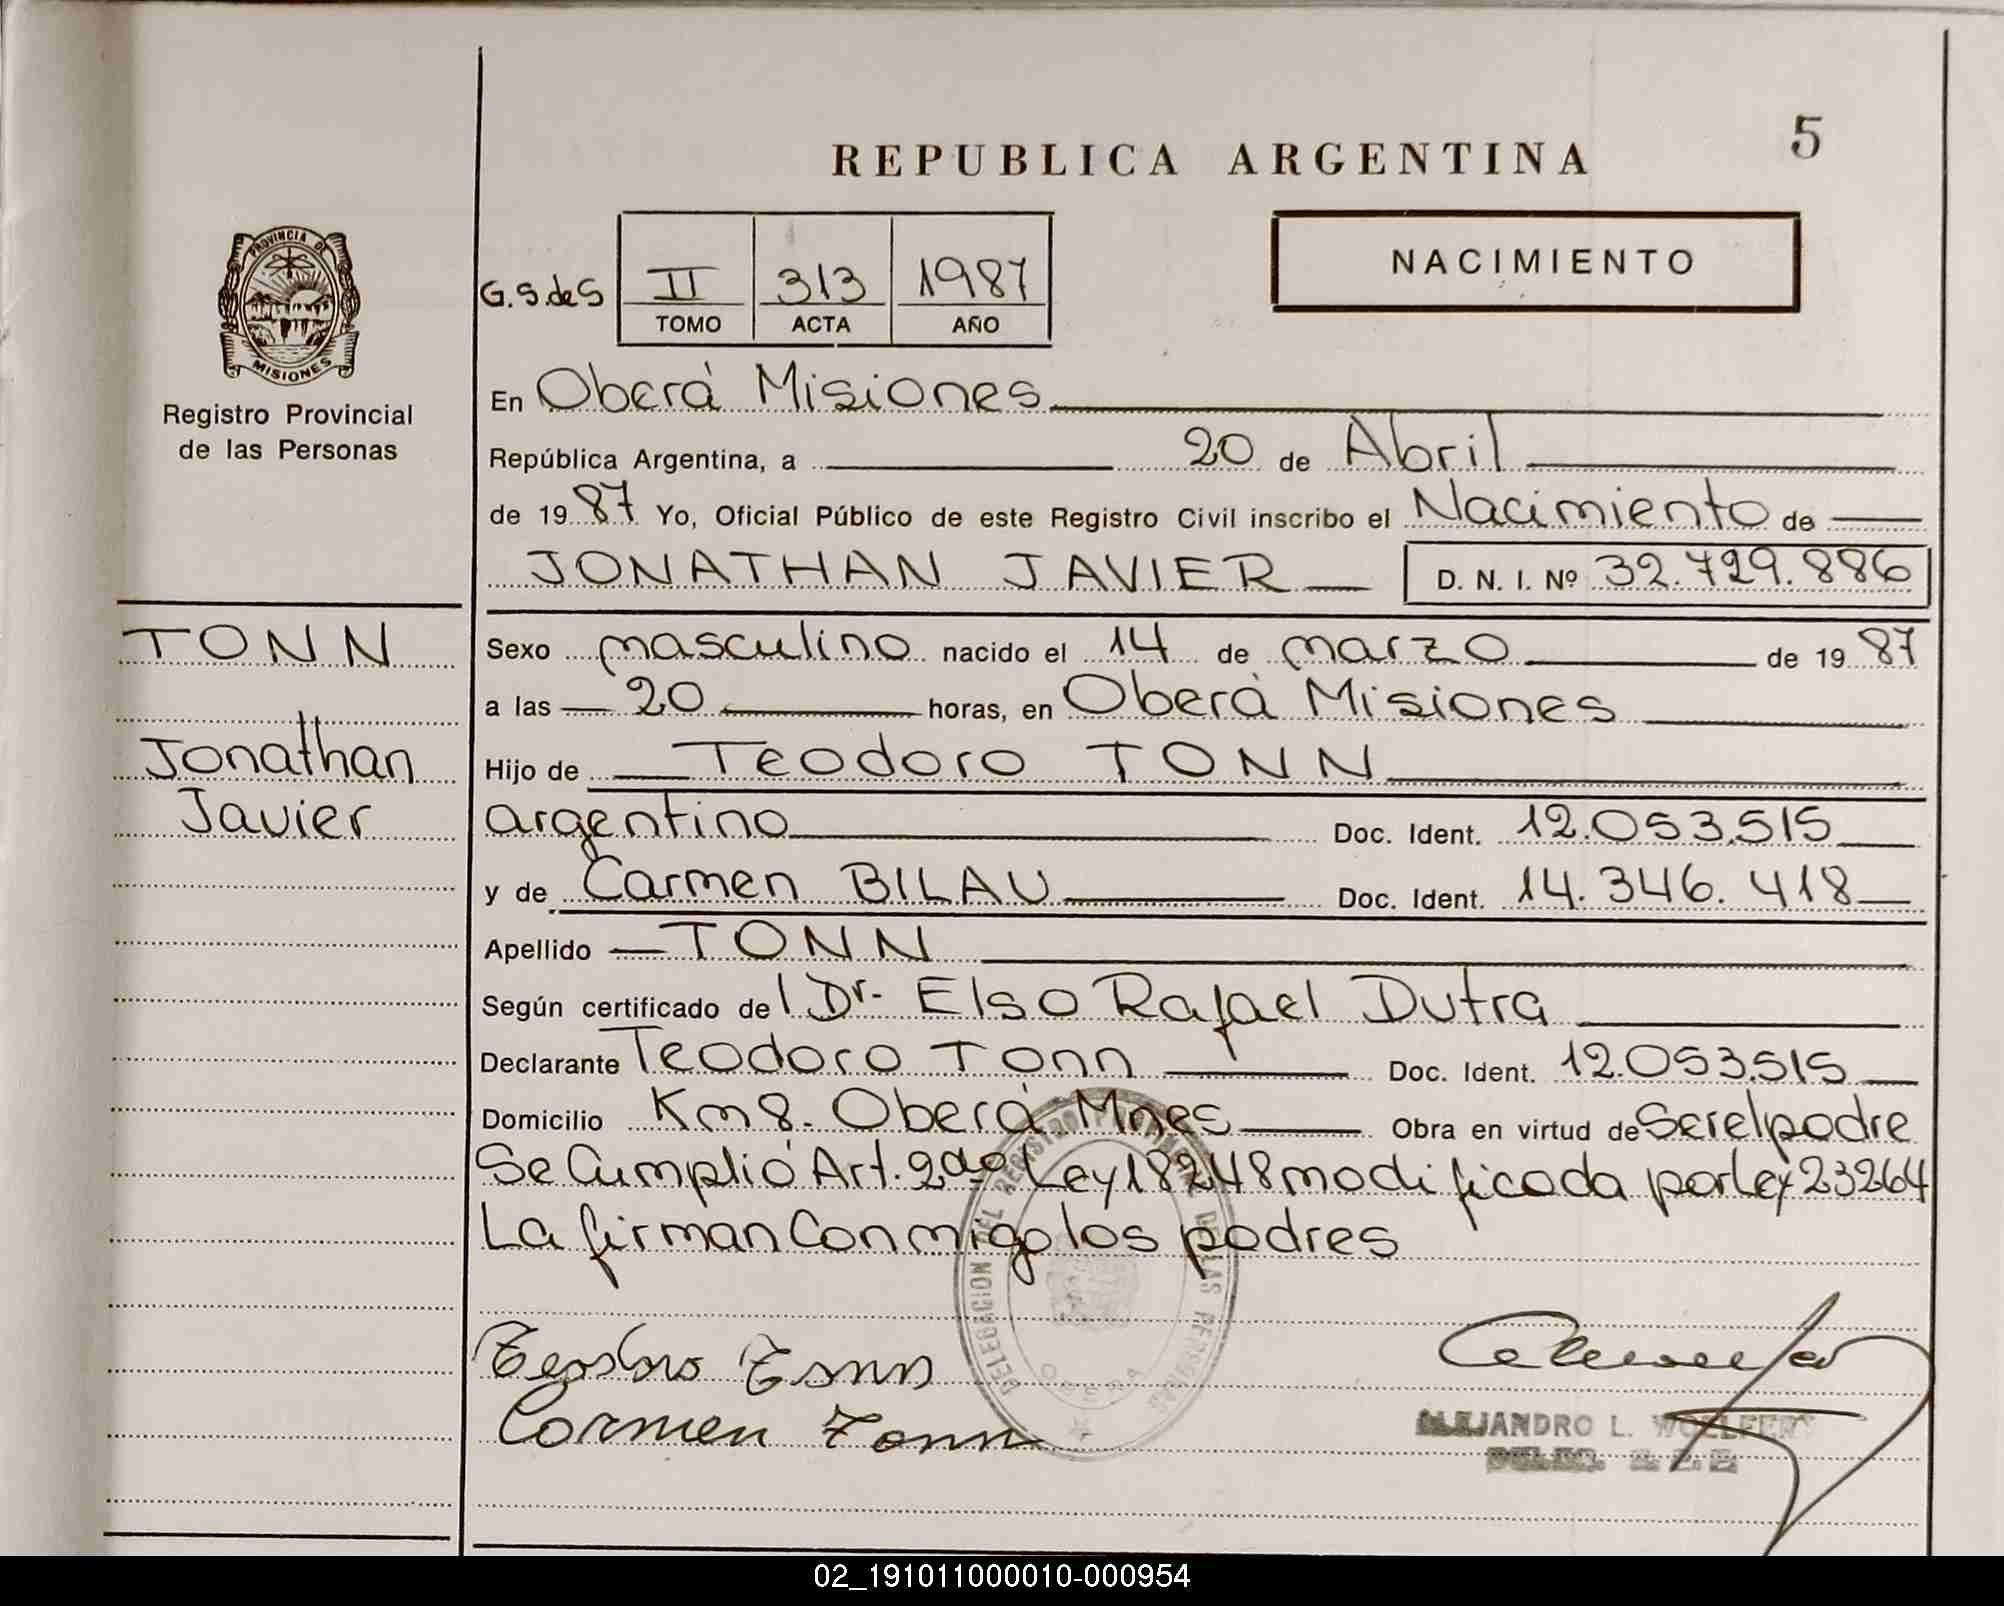 5
REPUBLICA ARGENTINA
NACIMIENTO
G.S.deS
II 313 1987
TOMO ACTA AÑO
PROVINCIA DE
MISIONES
Registro Provincial
de las Personas
En Oberá Misiones
República Argentina, a 20 de Abril
de 1987 Yo, Oficial Público de este Registro Civil inscribo el Nacimiento de
JONATHAN JAVIER D. N. I. Nº 32.729.886
TONN
Jonathan
Javier
Sexo masculino nacido el 14 de marzo de 1987
a las 20 horas, en Oberá Misiones
Hijo de Teodoro TONN
argentino Doc. Ident. 12.053.515
y de Carmen BILAU Doc. Ident. 14.346.418
Apellido TONN
Según certificado del Dr. Elso Rafael Dutra
Declarante Teodoro Tonn Doc. Ident. 12.053.515
Domicilio Km 8. Oberá Mnes Obra en virtud de ser el padre
Se Cumplió Art. 2do Ley 18248 modificada por Ley 23264
La firman Conmigo los padres
DELEGACION DEL REGISTRO PROVINCIAL DE LAS PERSONAS
OBERA
Teodoro Tonn
Carmen Tonn
ALEJANDRO L.
02_191011000010-000954